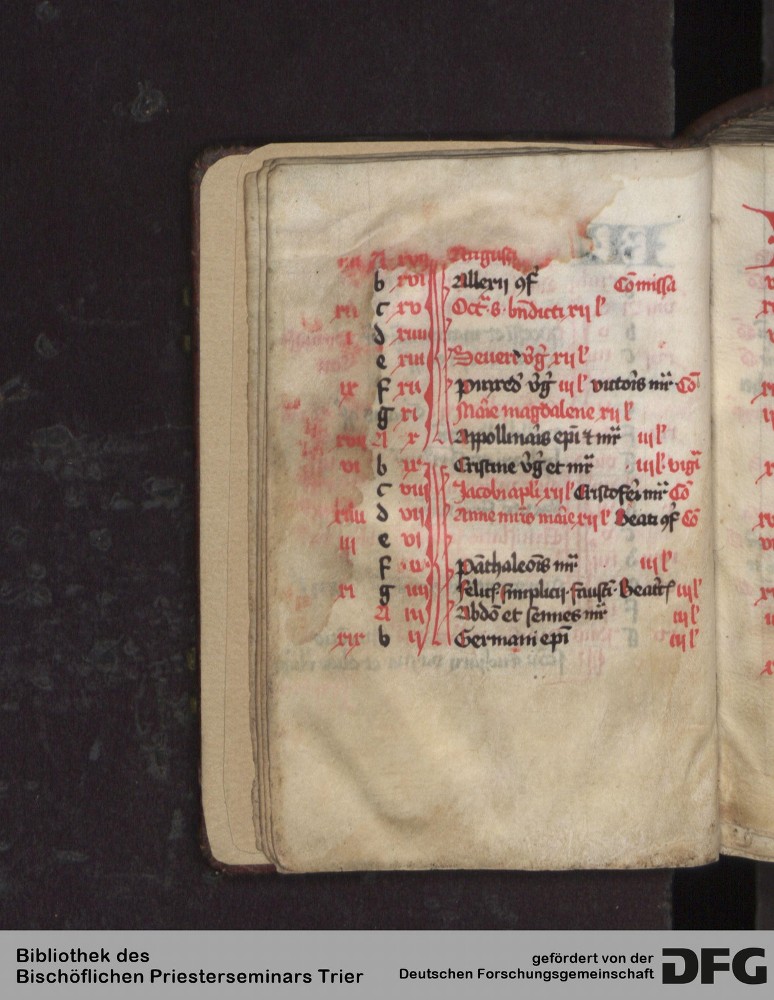 xvii Augusti
b xvi Allexii ɔf Cōmissa
xii c xv Oct᷑ s bn̄dicti xii l'
i d xiiii
e xiii Seuere v̄g xii l'
ix f xii praxed' v̄g iii l' victoīs mr̄ Cō
g xi Marie magdalene xii l'
xvii A x Appollinaīs ep̄i et mr̄ iii l'
vi b ix Cristine v̄g et mr̄ iii l' vigī
c viii Jacobi apl̄i xii l' Cristofeī mr̄ Cō
xiiii d vii Anne mr̄is marīe xii l' Beati ɔf Cō
iii e vi
f v pāthaleōis mr̄ iii l'
xi g iiii felicis simplicii fausti Beatricis iii l'
A iii Abdō et sennes mr̄ iii l'
xix b ii Germani ep̄i iii l'
Bibliothek des
Bischöflichen Priesterseminars Trier
gefördert von der
Deutschen Forschungsgemeinschaft DFG